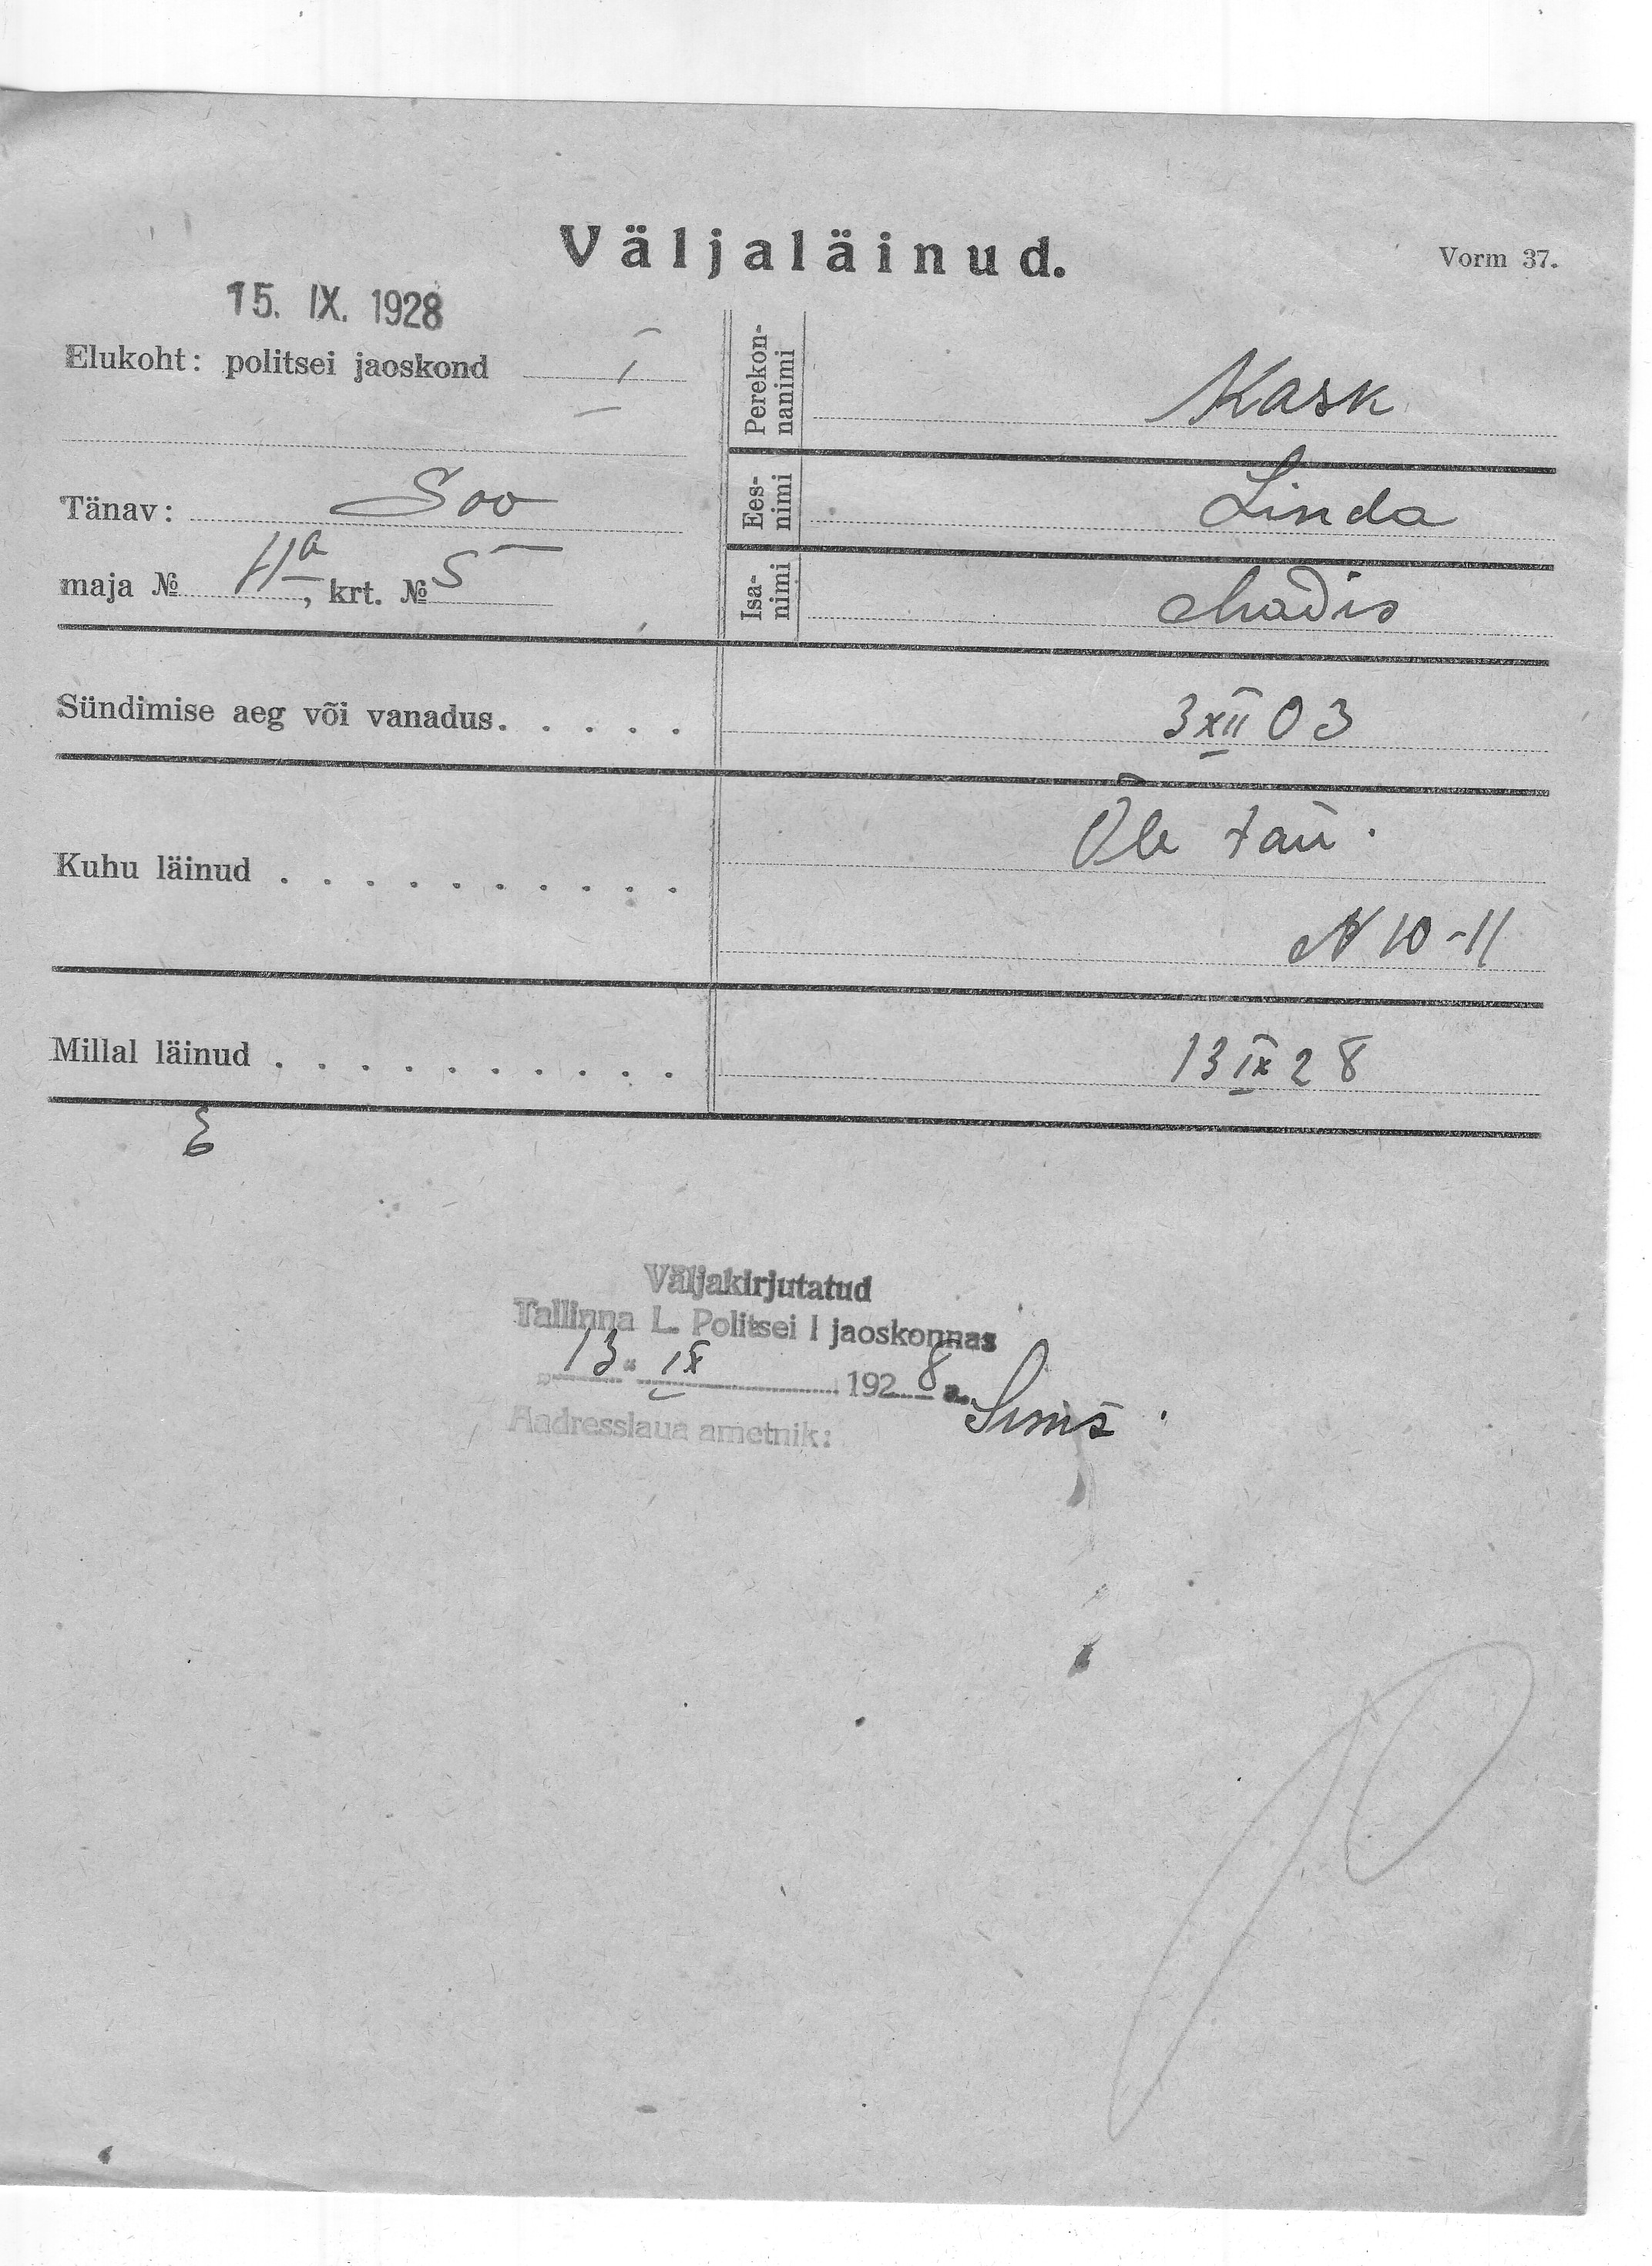 Väljaläinud.
Vorm 37.
15. IX. 1928
Elukoht: politsei jaoskond I
Tänav: Soo
maja № 11a, krt. № 5
Perekon-
nanimi
Kask
Ees-
nimi
Linda
Isa-
nimi
Madis
Sündimise aeg või vanadus. . . . . 3 XII 03
Kuhu läinud . . . . . . . . . . Õle tän.
N 10-11
Millal läinud . . . . . . . . . . 13 IX 28
Väljakirjutatud
Tallinna L. Politsei I jaoskonnas
„13“ IX 1928 a.
Aadresslaua ametnik: